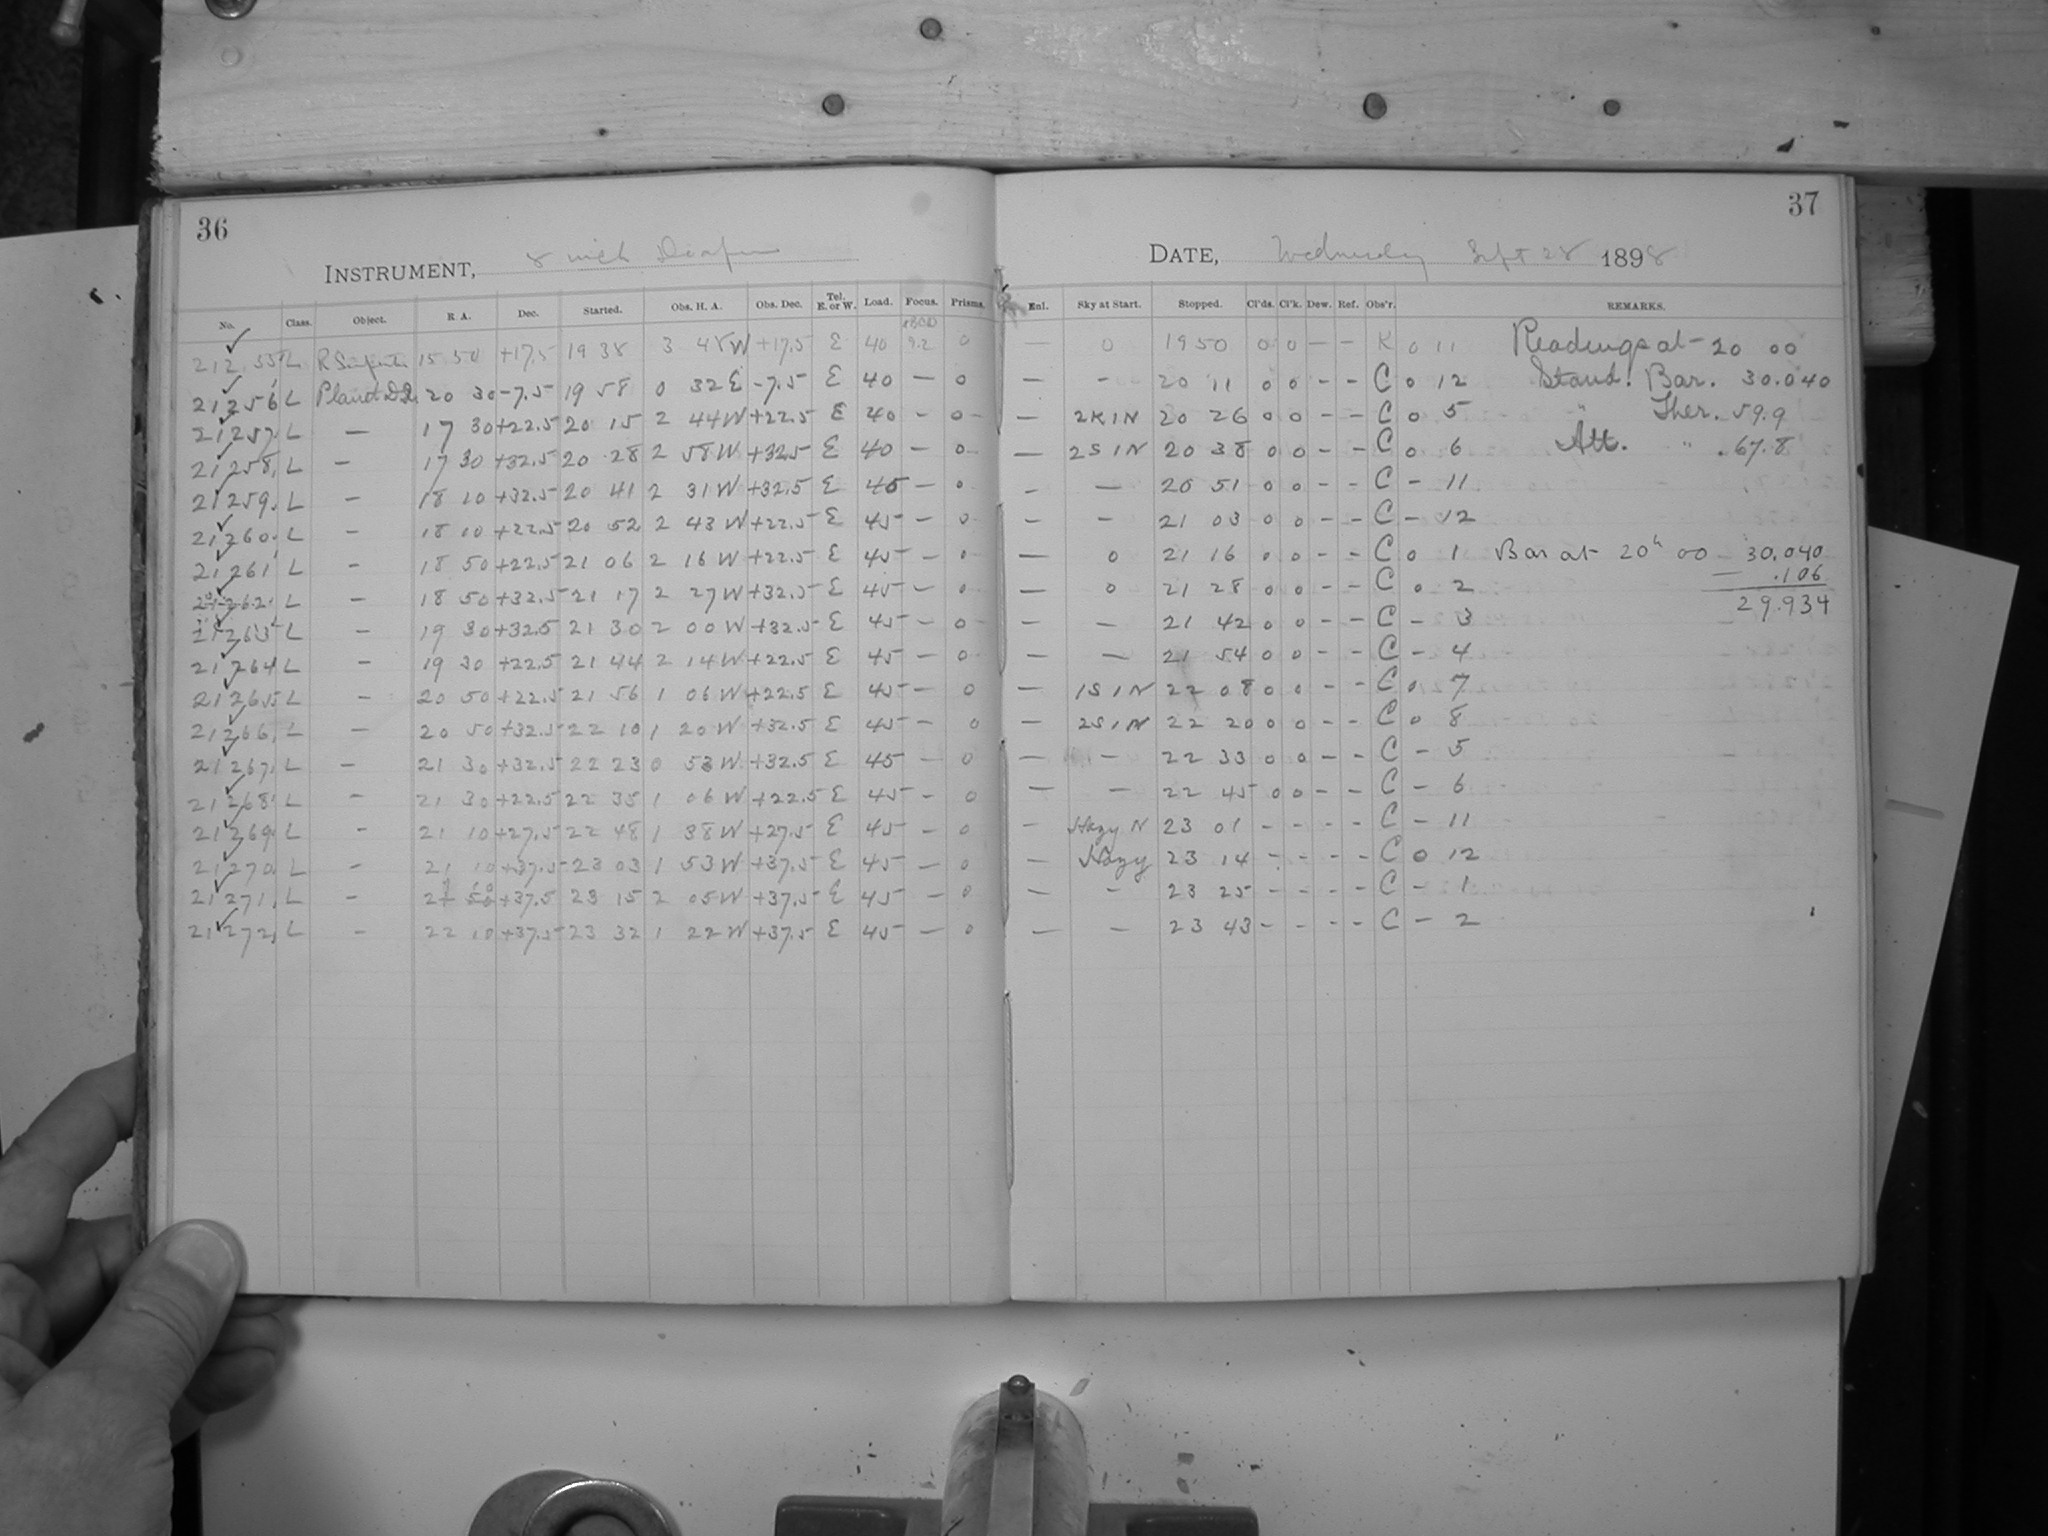 36
INSTRUMENT, 8 inch Draper
No. Class. Object. R A. Dec. Started. Obs. H. A. Obs. Dec. Tel. E. or W. Load. Focus. Prisms.
21255 L R Serpentis 15 50 +17.5 19 38 3 48 W +17.5 E 40 9.2 0
21256 L Planet DQ. 20 30 -7.5 19 58 0 32 E -7.5 E 40 — 0
21257 L — 17 30 +22.5 20 15 2 44 W +22.5 E 40 — 0
21258 L — 17 30 +32.5 20 28 2 58 W +32.5 E 40 — 0
21259 L — 18 10 +32.5 20 41 2 31 W +32.5 E 45 — 0
21260 L — 18 10 +22.5 20 52 2 43 W +22.5 E 45 — 0
21261 L — 18 50 +22.5 21 06 2 16 W +22.5 E 45 — 0
21262 L — 18 50 +32.5 21 17 2 27 W +32.5 E 45 — 0
21263 L — 19 30 +32.5 21 30 2 00 W +32.5 E 45 — 0
21264 L — 19 30 +22.5 21 44 2 14 W +22.5 E 45 — 0
21265 L — 20 50 +22.5 21 56 1 06 W +22.5 E 45 — 0
21266 L — 20 50 +32.5 22 10 1 20 W +32.5 E 45 — 0
21267 L — 21 30 +32.5 22 23 0 53 W +32.5 E 45 — 0
21268 L — 21 30 +22.5 22 35 1 06 W +22.5 E 45 — 0
21269 L — 21 10 +27.5 22 48 1 38 W +27.5 E 45 — 0
21270 L — 21 10 +37.5 23 03 1 53 W +37.5 E 45 — 0
21271 L — +37.5 23 15 2 05 W +37.5 E 45 — 0
21272 L — 22 10 +37.5 23 32 1 22 W +37.5 E 45 — 0
37
DATE, Wednesday Sept 28 1898
Enl. Sky at Start. Stopped. Cl'ds. Cl'k. Dew. Ref. Obs'r. REMARKS.
— 0 19 50 0 0 — — K 0 11 Readings at — 20 00
— - 20 11 0 0 - - C 0 12 Stand. Bar. 30.040
— 2K1N 20 26 0 0 - - C 0 5 " Ther. 59.9
— 2S1N 20 38 0 0 - - C 0 6 Att. " 67.8
- — 20 51 0 0 - - C - 11
- - 21 03 0 0 - - C - 12
— 0 21 16 0 0 - - C 0 1 Bar at 20h 00 30.040
— 0 21 28 0 0 - - C 0 2 — .106
— — 21 42 0 0 - - C - 3 29.934
— — 21 54 0 0 - - C - 4
— 1S1N 22 08 0 0 - - C 0 7
— 2S1N 22 20 0 0 - - C 0 8
— - 22 33 0 0 - - C - 5
— - 22 45 0 0 - - C - 6
— Hazy N 23 01 - - - - C - 11
— Hazy 23 14 - - - - C 0 12
— - 23 25 - - - - C - 1
— - 23 43 - - - - C - 2